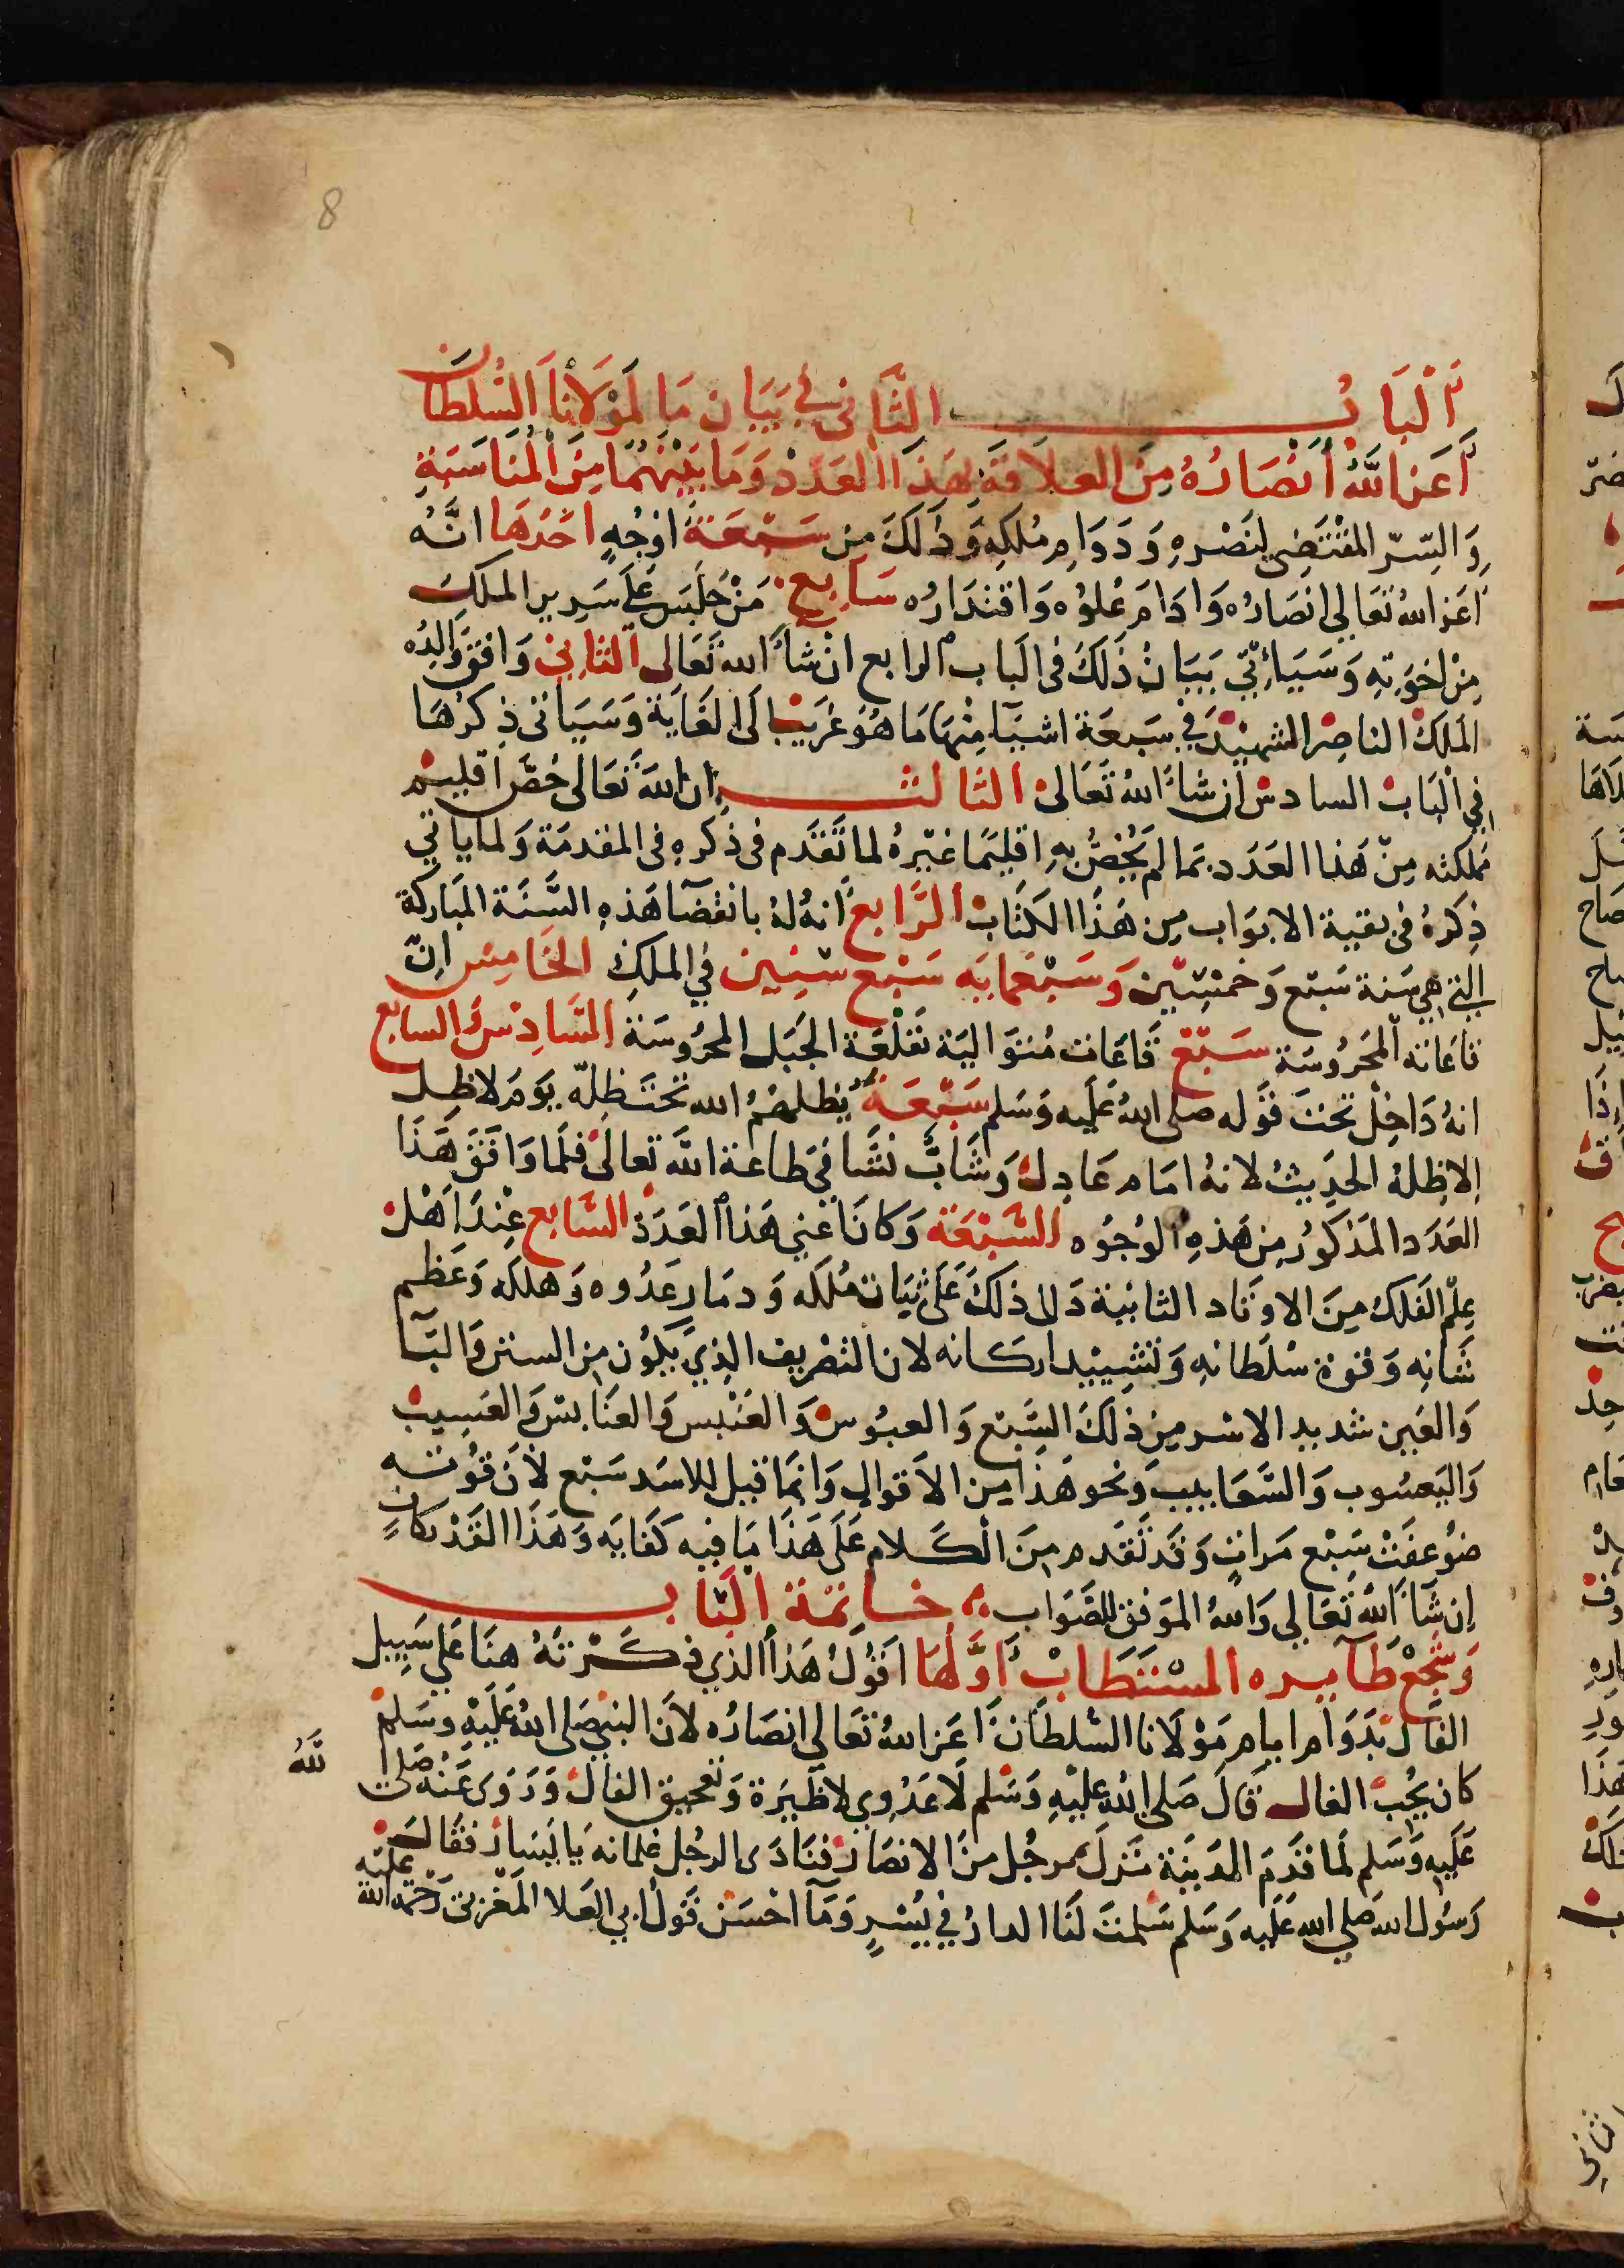 8
اَلْبَابُ الثَّانى فِي بَيَان مَا لمَوْلَانَا السُّلطَان
أَعَز اللَّهُ أَنْصَارُهُ مِنَ العلَاقَةِ بهَذَا العَدَدْ وَمَا بَيْنَهُمَا مِنَ اَلمُنَاسَبَةِ
وَالسِّرّ المقْتَضِى لِنَصْرهِ وَدَوَامِ مُلكِهِ وَذَلكَ مِن سَبْعَة اوْجُهٍ احَدُهَا انَّهُ
اَعَز اللهُ تعَالي انصَارُه وَادَامَ عُلوُه وَاقتدَارُه سَابِع مَنْ جَلَسَ عَلَى سَرِير الملكِ
مِنْ اخوَتِهِ وَسَيَأتي بَيَانُ ذَلكَ في الَباب الرابع انْ شَأَ الله تَعَالى الثانِي وَافقَ وَالِدُه
المَلكُ الناصِر الشهيْد في سَبعَة اشيَآ مِنْهَا مَا هُوَ غَريْب الَى الغَايَة وَسَيَاتى ذِكرُهَا
في الْبَاب السادسْ ان شَأَ اللهُ تَعَالى الثَالثـــ ان اللهَ تعَالى خصَّ اقليْم
مَملكته مِنْ هَذا العَدَد بمَا لم يَخُصّ بهِ اقليَما غيْرهُ لمَا تَقَدَم في ذكرهِ في المقدمَة وَلمَا ياتي
ذِكرهُ في بقية الابوَاب مِن هَذَا الكتَاب الرَّابع انهُ لهُ بانقضَآ هَذهِ السَّنَة المبَاركة
التي هِي سَنة سَبْع وَخمْسِيْن وَسَبْعمايَه سَبْع سِنِين فِي الملكِ الخَامِس انّ
قاعَاته المحَرُوسَة سَبْع قَاعَات مُتوَاليَة بقَلْعَة الجَبَل المحرُوسَة السَّادِسْ السابع
انهُ دَاخِلْ تحْتَ قوْله صلى اللهُ عَلَيه وَسَلم سَبْعَةٌ يُظلهُمُ الله تحْتَ ظِلّهِ يَوْمَ لا ظِل
الا ظِلهُ الحَدِيثْ لانهُ امَام عَادِل وَشَابٌّ نشَا في طَاعة اللَّه تَعالى فلَما وَافَقَ هَذَا
العَدَد المَذكوُر مِن هَذهِ الوُجُوه السَّبْعَة وَكانَ اعْني هَذا العَدَدْ السَّابع عِنْدَ اَهْل
عِلْم الفَلك مِنَ الاوتَاد الثابتة دَل ذلكَ عَلَى ثبَات مُلكه وَدمَار عَدُوه وَهلكه وَعَظم
شَانِه وَقوة سْلطَانهِ وَتشييْد اركَانه لان التصْريف الذِيْ يكُون مِن السين وَالبَآ
وَالعَين شديد الاسر مِن ذَلكَ السَّبع وَالعبُوس وَالعَنْبس وَالعنَابس وَالعَسِيب
وَاليَعسُوب وَالسَّعَابيب وَنحو هَذا مِن الاَقوال وَانمَا قيل للاسَد سَبْع لأَن قوُته
ضُوعفَتْ سَبْع مَراتٍ وَقد تقدم مِنَ الْكَلام عَلَى هَذَا مَا فيه كفَايَه وَهَذَا القَدْر كافٍ
إن شَآ اللهُ تعَالي وَاللهُ الموَفق للصَّوَاب خَاتمَة الْبَابـــ
وَسَجْعْ طَآيره المسْتَطَابْ أَوَّلهَا اقوُلُ هَذَا الذي ذَكَرْتَهُ هنَا عَلى سَبِيل
الفَال بدَوَام ايام مَوْلَانا السُّلطَان اَعَز اللهُ تعَالي انصَارُه لانَ النبي صَلى اللهُ عَلَيْهِ وسَلم
كان يُحِبّ الفال قَالَ صَلى اللهُ عَليْهِ وَسَلم لَا عَدْوي وَلا طَيَرَة وَتحيق الفال وَرَوى عَنْهُ صَلى اللَّهُ
عَلَيهِ وَسَلم لما قَدِمَ المَدينَة نَزلَ برجُل مِنَ الانصَار فنَادَى الرجُل غلمانه يَا يَسَار فقَال
رَسُول الله صَلى الله عَلَيه وَسَلم سَلمتَ لنَا الدارُ فِي يُسْرٍ وَمَآ احْسَن قَول ابي العَلا المَغْربى رَحْمة الله عليْه